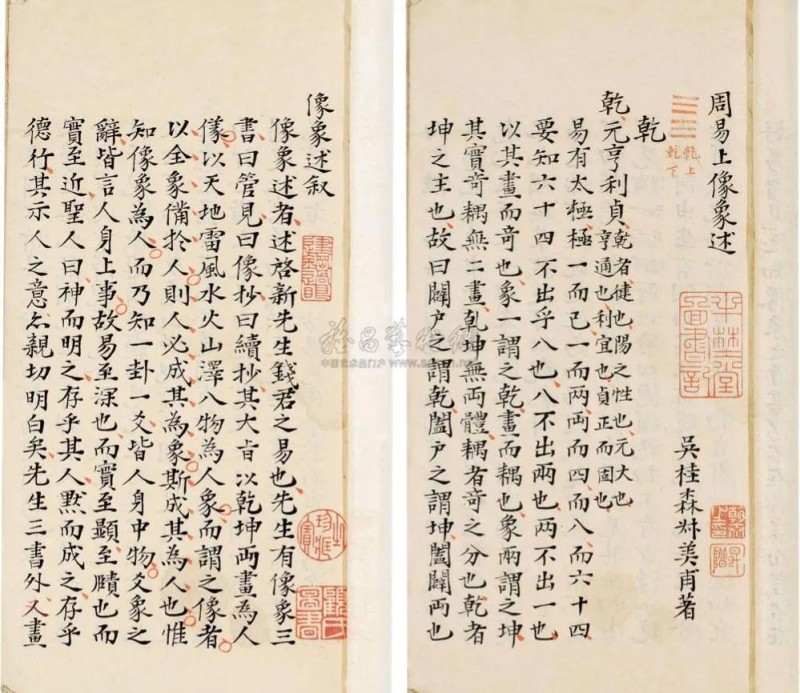 周易上像象述
吳桂森叔美甫著
乾上
乾下
乾
乾元亨利貞乾者健也陽之性也元大也
亨通也利宜也貞正而固也
易有太極極一而已一而兩兩而四而八而六十四
要知六十四不出乎八也八不出兩也兩不出一也
以其畫而奇也象一謂之乾畫而耦也象兩謂之坤
其實奇耦無二畫乾坤無兩體耦者奇之分也乾者
坤之主也故曰闢戶之謂乾闔戶之謂坤闔闢兩也
像象述叙
像象述者述啓新先生錢君之易也先生有像象三
書曰管見曰像抄曰續抄其大旨以乾坤兩畫為人
儀以天地雷風水火山澤八物為人象而謂之像者
以全象備於人則人必成其為象斯成其為人也惟
知像象為人而乃知一卦一爻皆人身中物爻象之
辭皆言人身上事故易至深也而實至顯至賾也而
實至近聖人曰神而明之存乎其人默而成之存乎
德行其示人之意亦親切明白矣先生三書外又畫